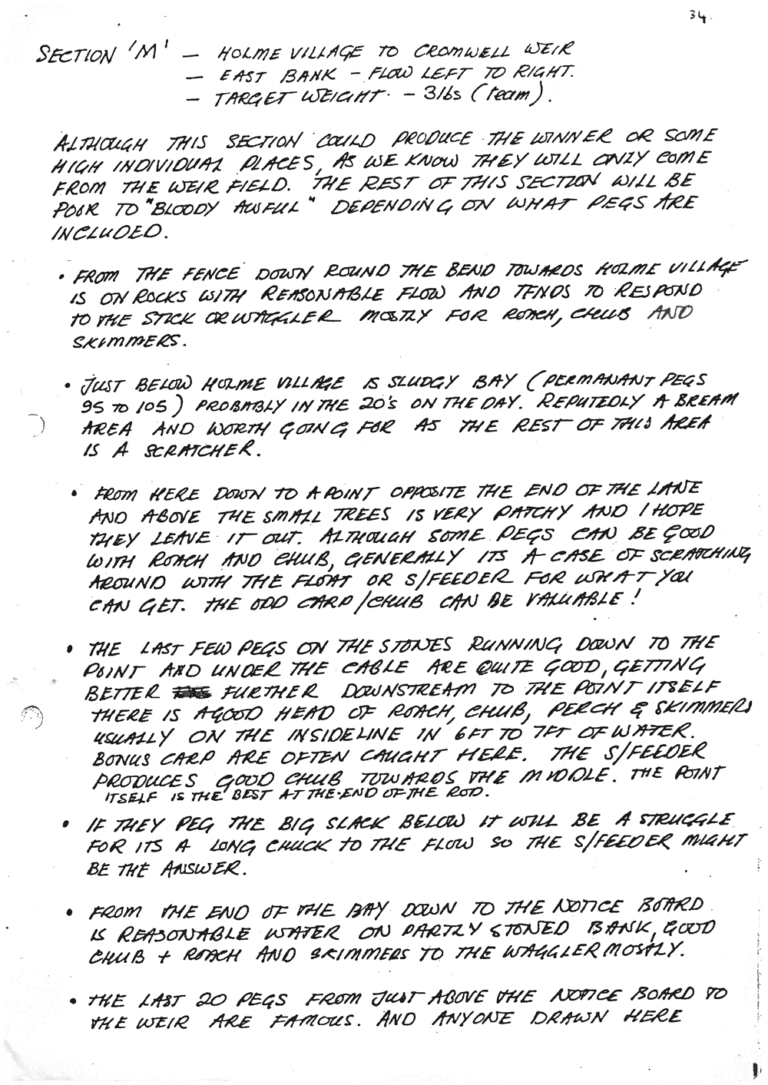 34.
SECTION 'M' – HOLME VILLAGE TO CROMWELL WEIR
– EAST BANK – FLOW LEFT TO RIGHT.
– TARGET WEIGHT – 3lbs (team).
ALTHOUGH THIS SECTION COULD PRODUCE THE WINNER OR SOME
HIGH INDIVIDUAL PLACES, AS WE KNOW THEY WILL ONLY COME
FROM THE WEIR FIELD. THE REST OF THIS SECTION WILL BE
POOR TO "BLOODY AWFUL" DEPENDING ON WHAT PEGS ARE
INCLUDED.
• FROM THE FENCE DOWN ROUND THE BEND TOWARDS HOLME VILLAGE
IS ON ROCKS WITH REASONABLE FLOW AND TENDS TO RESPOND
TO THE STICK OR WAGGLER MOSTLY FOR ROACH, CHUB AND
SKIMMERS.
• JUST BELOW HOLME VILLAGE IS SLUDGY BAY (PERMANANT PEGS
95 TO 105) PROBABLY IN THE 20's ON THE DAY. REPUTEDLY A BREAM
AREA AND WORTH GOING FOR AS THE REST OF THIS AREA
IS A SCRATCHER.
• FROM HERE DOWN TO A POINT OPPOSITE THE END OF THE LANE
AND ABOVE THE SMALL TREES IS VERY PATCHY AND I HOPE
THEY LEAVE IT OUT. ALTHOUGH SOME PEGS CAN BE GOOD
WITH ROACH AND CHUB, GENERALLY ITS A CASE OF SCRATCHING
AROUND WITH THE FLOAT OR S/FEEDER FOR WHAT YOU
CAN GET. THE ODD CARP/CHUB CAN BE VALUABLE!
• THE LAST FEW PEGS ON THE STONES RUNNING DOWN TO THE
POINT AND UNDER THE CABLE ARE QUITE GOOD, GETTING
BETTER FURTHER DOWNSTREAM TO THE POINT ITSELF
THERE IS A GOOD HEAD OF ROACH, CHUB, PERCH & SKIMMERS
USUALLY ON THE INSIDELINE IN 6FT TO 7FT OF WATER.
BONUS CARP ARE OFTEN CAUGHT HERE. THE S/FEEDER
PRODUCES GOOD CHUB TOWARDS THE MIDDLE. THE POINT
ITSELF IS THE BEST AT THE END OF THE ROD.
• IF THEY PEG THE BIG SLACK BELOW IT WILL BE A STRUGGLE
FOR ITS A LONG CHUCK TO THE FLOW SO THE S/FEEDER MIGHT
BE THE ANSWER.
• FROM THE END OF THE BAY DOWN TO THE NOTICE BOARD
IS REASONABLE WATER ON PARTLY STONED BANK, GOOD
CHUB + ROACH AND SKIMMERS TO THE WAGGLER MOSTLY.
• THE LAST 20 PEGS FROM JUST ABOVE THE NOTICE BOARD TO
THE WEIR ARE FAMOUS. AND ANYONE DRAWN HERE